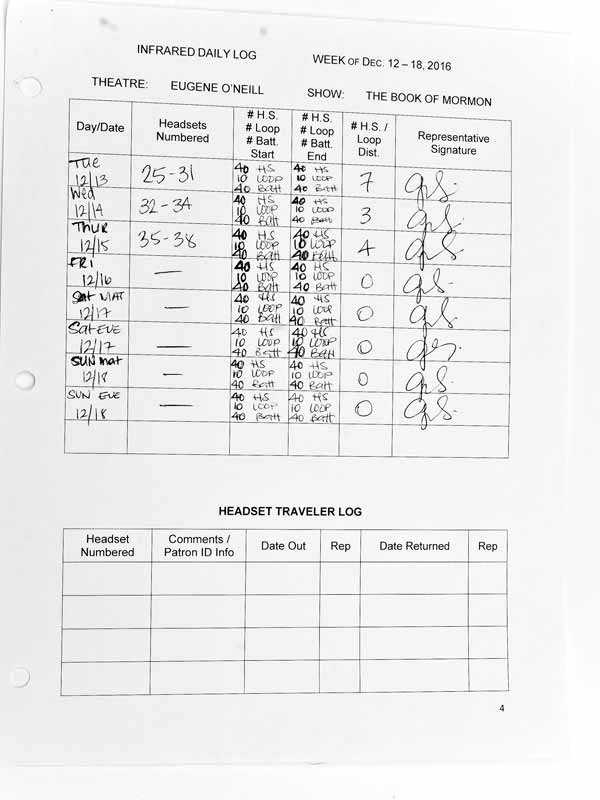 INFRARED DAILY LOG WEEK OF DEC. 12 – 18, 2016
THEATRE: EUGENE O'NEILL SHOW: THE BOOK OF MORMON
Day/Date Headsets Numbered # H.S. # Loop # Batt. Start # H.S. # Loop # Batt. End # H.S. / Loop Dist. Representative Signature
Tue 12/13 25-31 40 HS 10 LOOP 40 Batt 40 HS 10 LOOP 40 Batt 7
Wed 12/14 32-34 40 HS 10 LOOP 40 Batt 40 HS 10 LOOP 40 Batt 3
THUR 12/15 35-38 40 H.S 10 LOOP 40 Batt 40 HS 10 LOOP 40 Batt 4
FRI 12/16 — 40 H.S 10 LOOP 40 Batt 40 H.S 10 LOOP 40 Batt 0
Sat MAT 12/17 — 40 HS 10 LOOP 40 Batt 40 HS 10 LOOP 40 Batt 0
Sat EVE 12/17 — 40 HS 10 LOOP 40 Batt 40 HS 10 LOOP 40 Batt 0
SUN mat 12/18 — 40 HS 10 LOOP 40 Batt 40 HS 10 LOOP 40 Batt 0
SUN EVE 12/18 — 40 HS 10 LOOP 40 Batt 40 HS 10 LOOP 40 Batt 0
HEADSET TRAVELER LOG
Headset Numbered Comments / Patron ID Info Date Out Rep Date Returned Rep
4